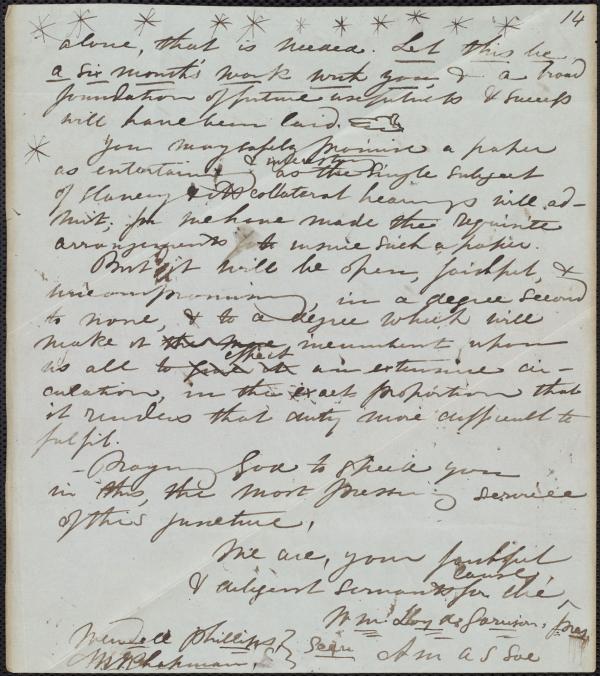 14
alone, that is needed. Let this be
a six months' work with you, & a broad
foundation of future usefulness & success
will have been laid.
You may safely promise a paper
as entertaining & interesting as the single subject
of slavery & its collateral bearings will ad-
mit; for we have made the requisite
arrangements to insure such a paper.
But it will be open, faithful, &
uncompromising, in a degree second
to none, & to a degree which will
make it the more incumbent upon
us all to give it effect an extensive cir-
culation, in the exact proportion that
it renders that duty more difficult to
fulfil.
– Praying God to speed you
in this, the most pressing service
of this juncture,
We are, your faithful
& diligent servants for the cause,
Wm. Lloyd Garrison, Pres
Wendell Phillips }
M W Chapman, } Secs Am A S Soc